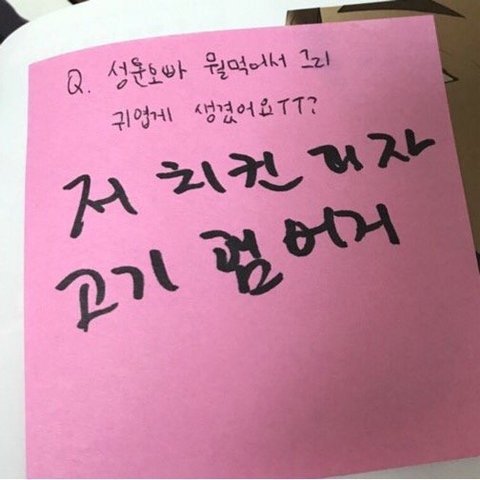 Q. 성운오빠 뭘먹어서 그리
귀엽게 생겼어요TT?
저 치킨 피자
고기 햄버거